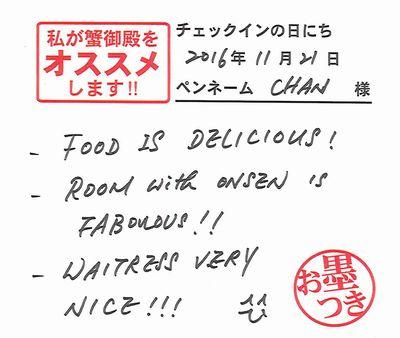 私が蟹御殿を
オススメ
します!!
チェックインの日にち
2016年11月21日
ペンネーム CHAN 様
- FOOD IS DELICIOUS!
- ROOM with ONSEN is
FABOULOUS!!
- WAITRESS VERY
NICE!!!
お墨つき